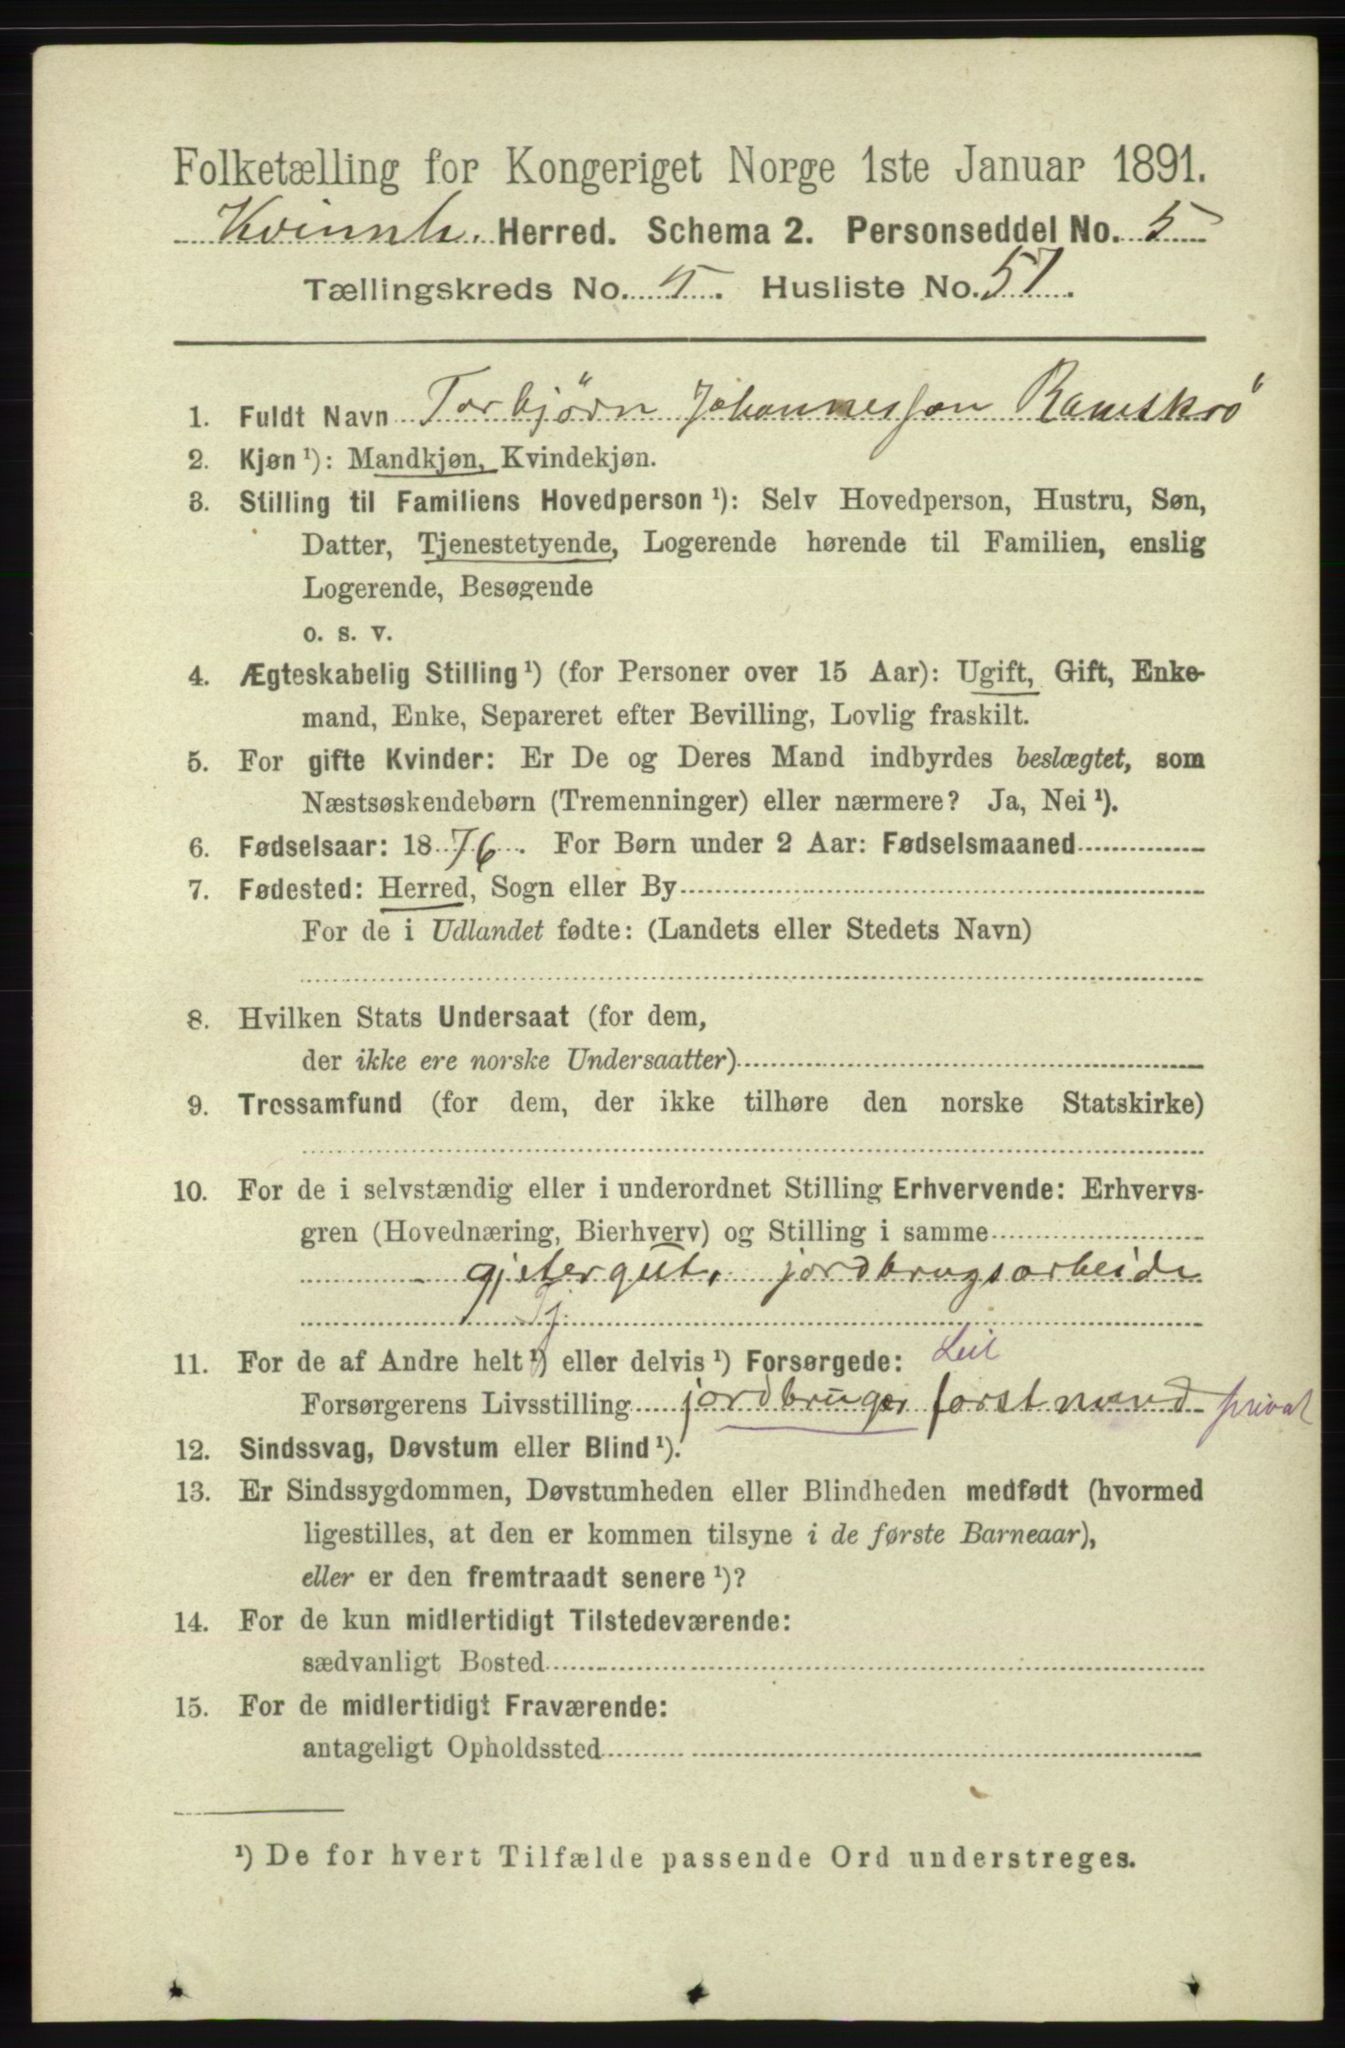 Folketælling for Kongeriget Norge 1ste Januar 1891.
Kvinnh. Herred. Schema 2. Personseddel No. 5
Tællingskreds No. 5. Husliste No. 57.
1. Fuldt Navn Torbjørn Johannesson Ramskrö
2. Kjøn ¹): Mandkjøn, Kvindekjøn.
3. Stilling til Familiens Hovedperson ¹): Selv Hovedperson, Hustru, Søn,
Datter, Tjenestetyende, Logerende hørende til Familien, enslig
Logerende, Besøgende
o. s. v.
4. Ægteskabelig Stilling ¹) (for Personer over 15 Aar): Ugift, Gift, Enke-
mand, Enke, Separeret efter Bevilling, Lovlig fraskilt.
5. For gifte Kvinder: Er De og Deres Mand indbyrdes beslægtet, som
Næstsøskendebørn (Tremenninger) eller nærmere? Ja, Nei ¹).
6. Fødselsaar: 1876. For Børn under 2 Aar: Fødselsmaaned
7. Fødested: Herred, Sogn eller By
For de i Udlandet fødte: (Landets eller Stedets Navn)
8. Hvilken Stats Undersaat (for dem,
der ikke ere norske Undersaatter)
9. Trossamfund (for dem, der ikke tilhøre den norske Statskirke)
10. For de i selvstændig eller i underordnet Stilling Erhvervende: Erhvervs-
gren (Hovednæring, Bierhverv) og Stilling i samme
gjetergut, jordbrugsarbeide
Tj
11. For de af Andre helt ¹) eller delvis ¹) Forsørgede: Leil
Forsørgerens Livsstilling jordbruger forstmand privat
12. Sindssvag, Døvstum eller Blind ¹).
13. Er Sindssygdommen, Døvstumheden eller Blindheden medfødt (hvormed
ligestilles, at den er kommen tilsyne i de første Barneaar),
eller er den fremtraadt senere ¹)?
14. For de kun midlertidigt Tilstedeværende:
sædvanligt Bosted
15. For de midlertidigt Fraværende:
antageligt Opholdssted
¹) De for hvert Tilfælde passende Ord understreges.